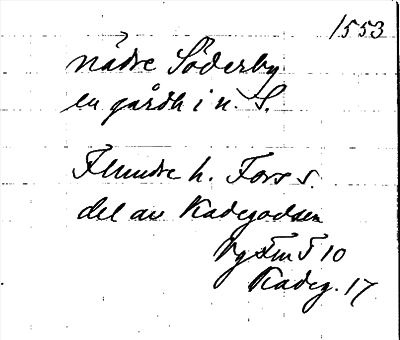 1553
nådre Söderby
en gårdh i n. S.
Flundre h. Fors s.
del av Kadegodsen
Vg Fm F 10
Kadeg. 17